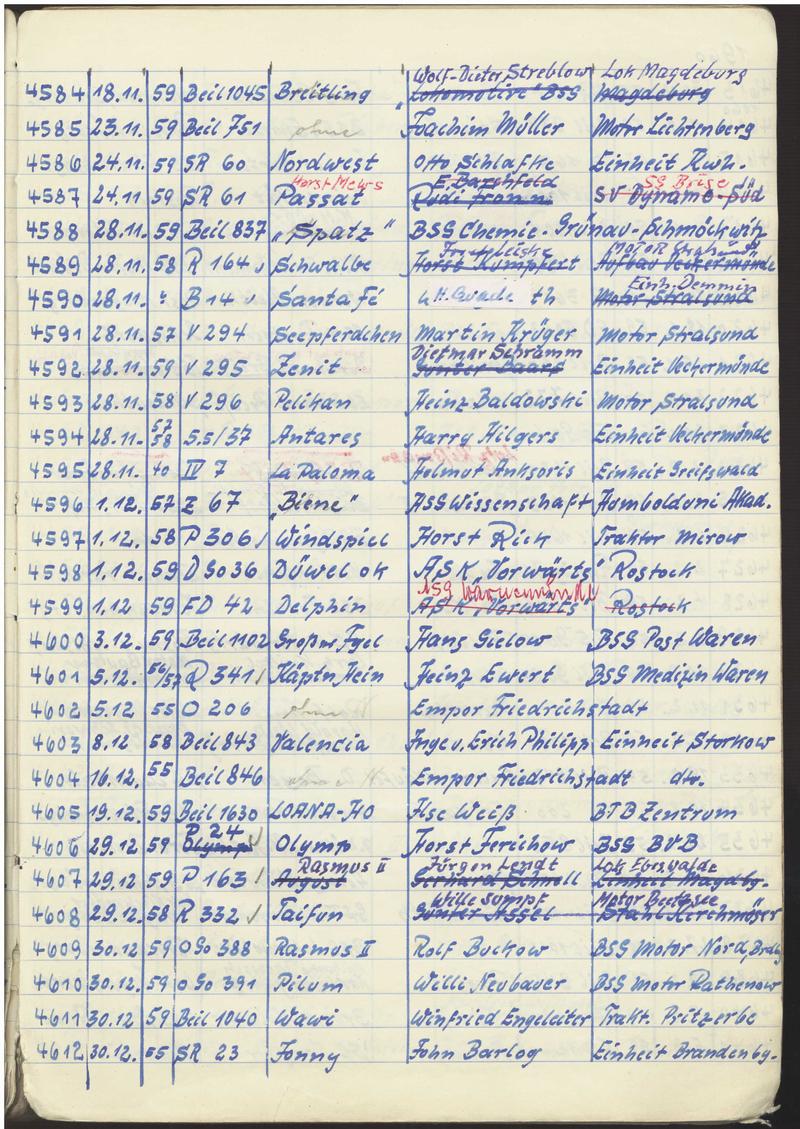 Wolf-Dieter Streblow Lok Magdeburg
4584 18.11. 59 Beil 1045 Breitling Lokomotive BSG Magdeburg
4585 23.11. 59 Beil 751 ohne Joachim Müller Motor Lichtenberg
4586 24.11. 59 SR 60 Nordwest Otto Schlafke Einheit Kwh.
Horst Mews SG Brise
4587 24.11. 59 SR 61 Passat SV Dynamo-Süd
4588 28.11. 59 Beil 837 "Spatz" BSG Chemie - Grünau-Schmöckwitz
4589 28.11. 58 R 164 Schwalbe Horst Rumpfert Aufbau Ueckermünde
Einh. Demmin
4590 28.11. " B 14 Santa Fé th Motor Stralsund
4591 28.11. 57 V 294 Seepferdchen Martin Krüger Motor Stralsund
Dietmar Schramm
4592 28.11. 59 V 295 Zenit Günter Baars Einheit Uechermünde
4593 28.11. 58 V 296 Pelikan Heinz Baldowski Motor Stralsund
57
4594 28.11. 58 5.5/37 Antares Harry Hilgers Einheit Uechermünde
4595 28.11. 40 IV 7 La Paloma Helmut Anksoris Einheit Greifswald
4596 1.12. 57 Z 67 "Biene" ASG Wissenschaft Humboldtuni Akad.
4597 1.12. 58 P 306 Windspiel Horst Rick Traktor Mirow
4598 1.12. 59 D So 36 Düwel ok ASK "Vorwärts" Rostock
ASG Warnemünde
4599 1.12 59 FD 42 Delphin ASK "Vorwärts" Rostock
4600 3.12. 59 Beil 1102 Großer Igel Hans Gielow BSG Post Waren
4601 5.12. 56/57 P 341 Käptn Hein Heinz Ewert BSG Medizin Waren
4602 5.12 55 O 206 ohne Empor Friedrichstadt
4603 8.12 58 Beil 843 Valencia Inge u. Erich Philipp Einheit Storkow
4604 16.12. 55 Beil 846 ohne Empor Friedrichstadt dto.
4605 19.12. 59 Beil 1630 LOANA-HO Ilse Weiß BTB Zentrum
P 24
4606 29.12 59 Olymp Olymp Horst Ferichow BSG BVB
Rasmus II Jürgen Lendt Lok Eberswalde
4607 29.12. 59 P 163 August Gerhard Schnell Einheit Magdbg.
Wille Sumpf Motor Beetzsee
4608 29.12. 58 R 332 Taifun Günter Assel Stahl Kirchmöser
4609 30.12 59 O So 388 Rasmus II Rolf Buckow BSG Motor Nord, Brdbg
4610 30.12. 59 O So 391 Pilum Willi Neubauer BSG Motor Rathenow
4611 30.12 59 Beil 1040 Wawi Winfried Engeleiter Trakt. Pritzerbe
4612 30.12. 55 SR 23 Jonny John Barlog Einheit Brandenbg.